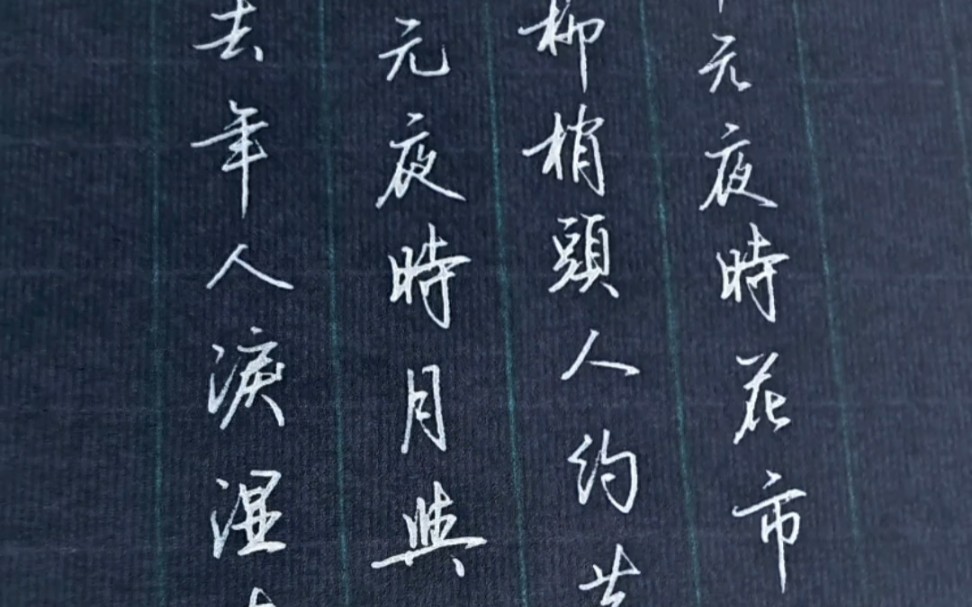 元夜時花市
柳梢頭人約黄
元夜時月與
去年人淚湿